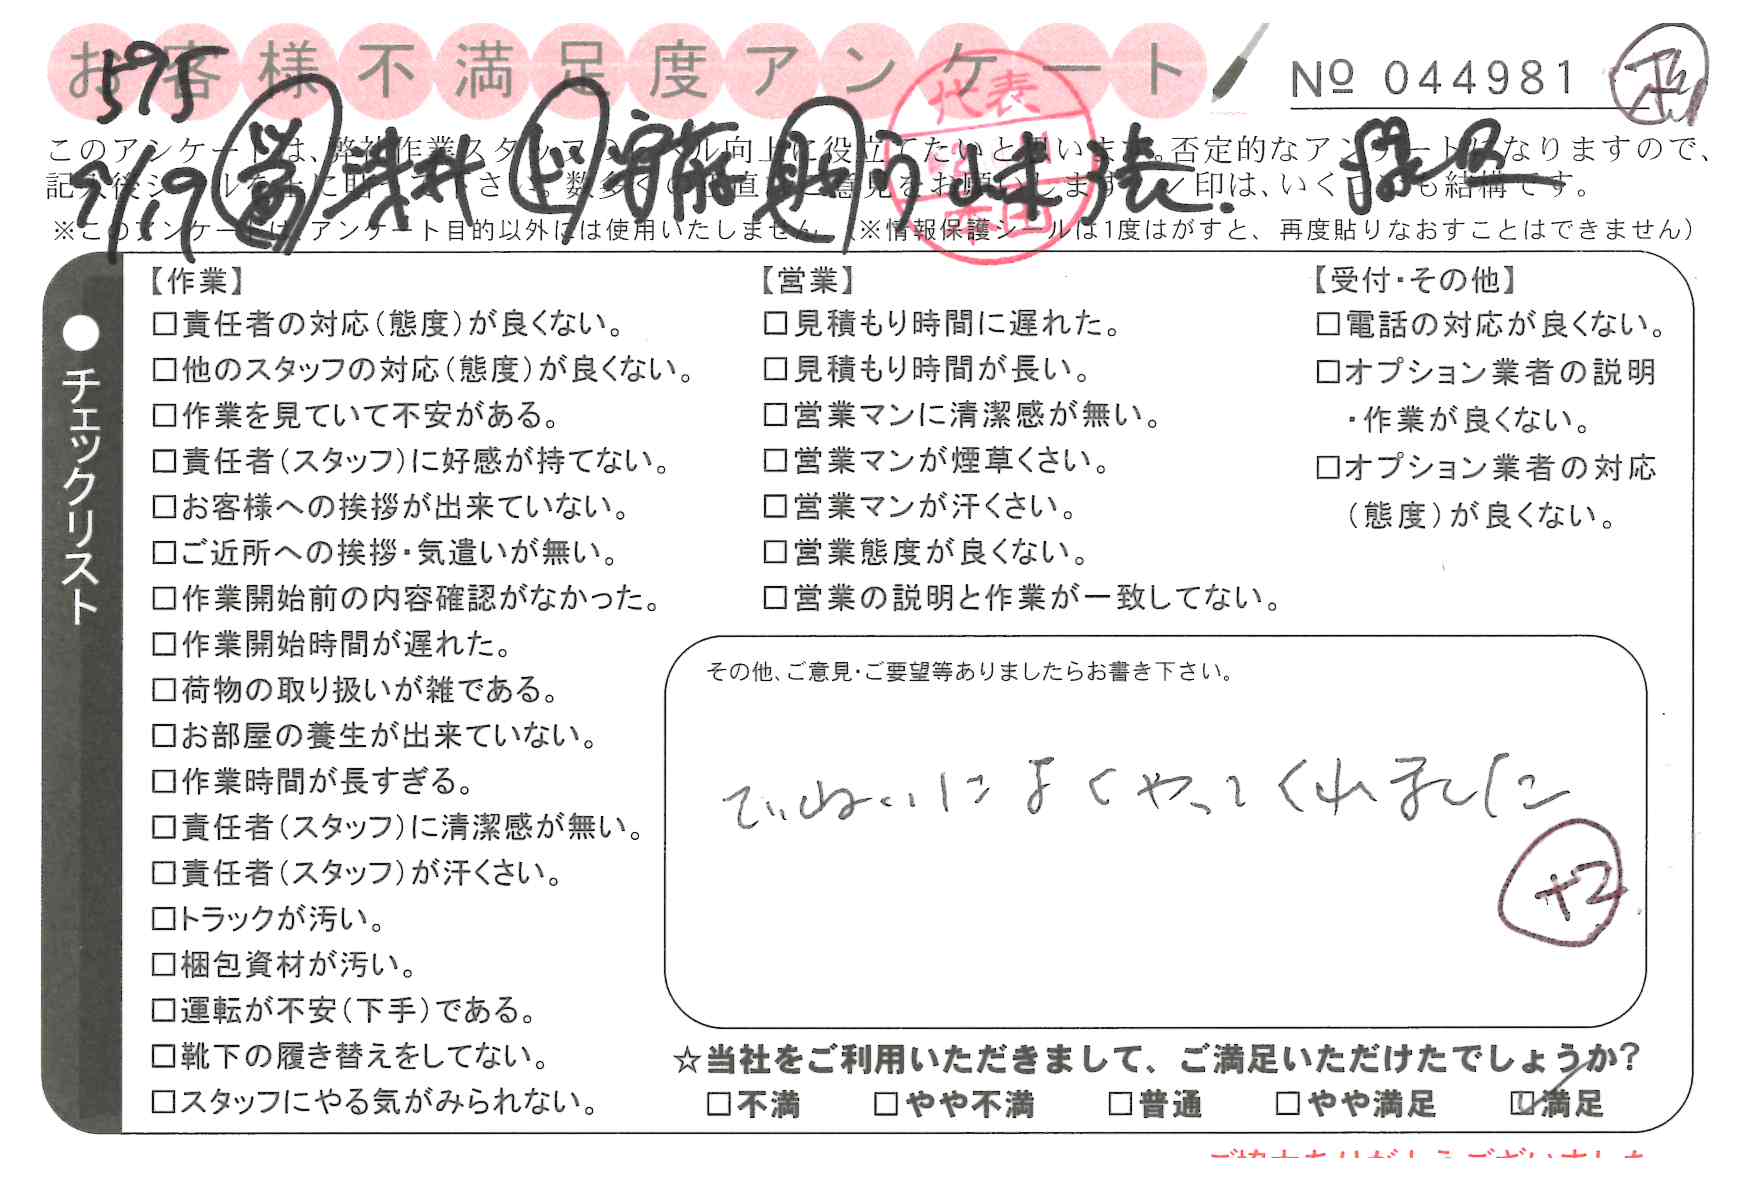 お客様不満足度アンケート
№ 044981
595
このアンケートは、弊社作業スタッフのレベル向上に役立てたいと思います。否定的なアンケートになりますので、
記入後シールを上に貼って下さい。数多くの率直なご意見をお願いします。✓印は、いくつでも結構です。
※このアンケートは、アンケート目的以外には使用いたしません。(※情報保護シールは1度はがすと、再度貼りなおすことはできません)
代表
●チェックリスト
【作業】
□責任者の対応(態度)が良くない。
□他のスタッフの対応(態度)が良くない。
□作業を見ていて不安がある。
□責任者(スタッフ)に好感が持てない。
□お客様への挨拶が出来ていない。
□ご近所への挨拶・気遣いが無い。
□作業開始前の内容確認がなかった。
□作業開始時間が遅れた。
□荷物の取り扱いが雑である。
□お部屋の養生が出来ていない。
□作業時間が長すぎる。
□責任者(スタッフ)に清潔感が無い。
□責任者(スタッフ)が汗くさい。
□トラックが汚い。
□梱包資材が汚い。
□運転が不安(下手)である。
□靴下の履き替えをしてない。
□スタッフにやる気がみられない。
【営業】
□見積もり時間に遅れた。
□見積もり時間が長い。
□営業マンに清潔感が無い。
□営業マンが煙草くさい。
□営業マンが汗くさい。
□営業態度が良くない。
□営業の説明と作業が一致してない。
【受付・その他】
□電話の対応が良くない。
□オプション業者の説明
・作業が良くない。
□オプション業者の対応
(態度)が良くない。
その他、ご意見・ご要望等ありましたらお書き下さい。
ていねいによくやってくれました
+2
☆当社をご利用いただきまして、ご満足いただけたでしょうか?
□不満 □やや不満 □普通 □やや満足 ☑満足
ご協力ありがとうございました